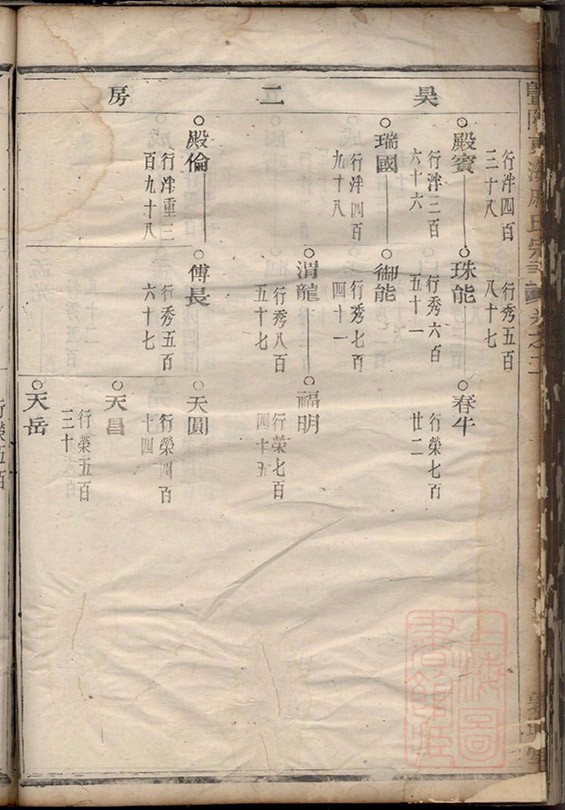 昊二房
行洋四百
三十八
行秀五百
八十七
殿賓
行洋三百
六十六
珠能
行秀六百
五十一
春牛
行榮七百
廿二
瑞國
行洋四百
九十八
御能
行秀七百
四十一
渭龍
行秀八百
五十七
福明
行榮七百
四十五
殿倫
行洋重三
百九十八
傅長
行秀五百
六十七
天圓
行榮四百
十四
天昌
行榮五百
三十
天岳